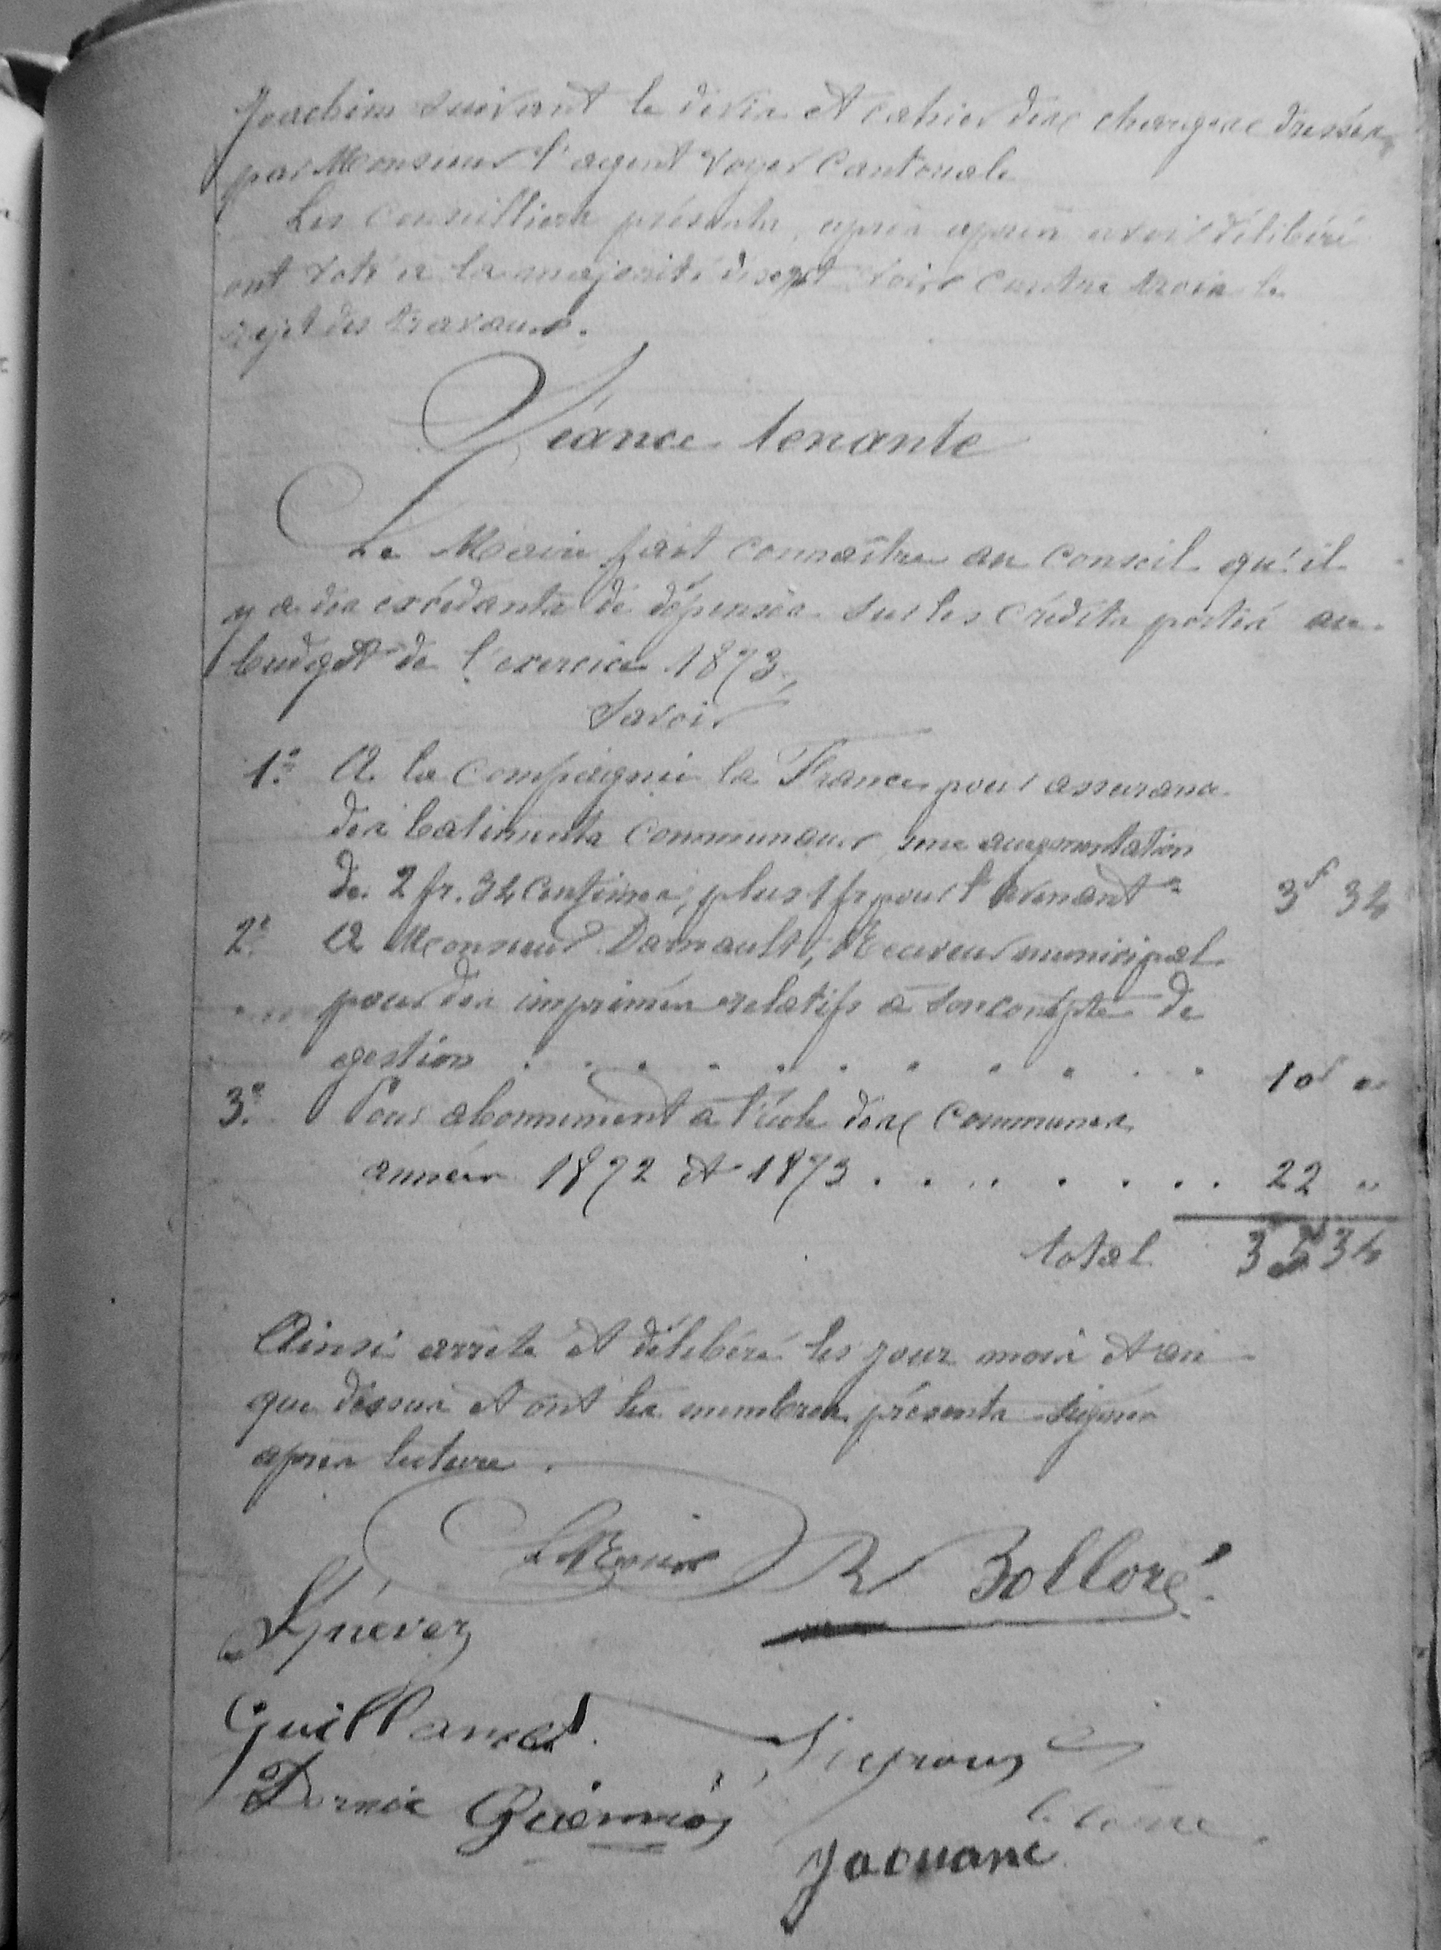 Joachim suivant le devis et cahier des charges dressés
par Monsieur l'agent voyer Cantonale
Les conseillers présents, après après avoir délibéré
ont voté à la majorité de sept voix contre trois le
rejet des travaux.
Séance tenante
Le Maire fait connaître au Conseil qu'il
y a des excédants de dépenses sur les crédits portés au
budget de l'exercice 1873,
Savoir
1º A la compagnie la France pour assurance
des batiments communaux, une augmentation
de 2 fr. 34 centimes, plus 1 fr pour l'avenant = 3f 34
2º A Monsieur Darnault, Receveur municipal
pour des imprimés relatifs à son compte de
gestion . . . . . . . . . . 10f "
3º Pour abonnement à l'école des communes
années 1872 et 1873 . . . . . . . . 22 "
total 35 34
Ainsi arrêté et délibéré les jour mois et an
que dessus et ont les membres présents signés
après lecture.
Le Maire R Bolloré
Guillamet
Dornic
Jaouanc